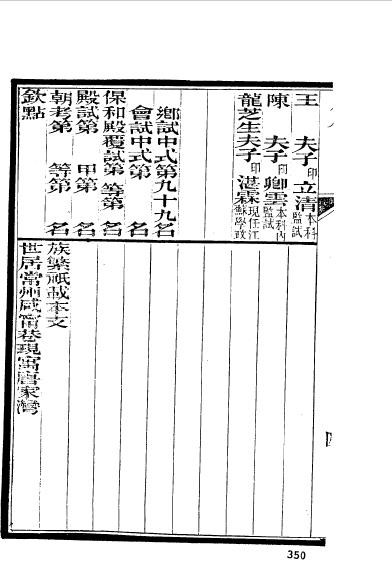 王 夫子印立清本科監試
陳 夫子印卿雲本科內監試
龍芝生夫子印湛霖現任江蘇學政
鄉試中式第九十九名
會試中式第 名
保和殿覆試第 等第 名
殿試第 甲第 名
朝考第 等第 名
欽點
族繁祇載本支
世居常州咸甯巷現寓唐家灣
350